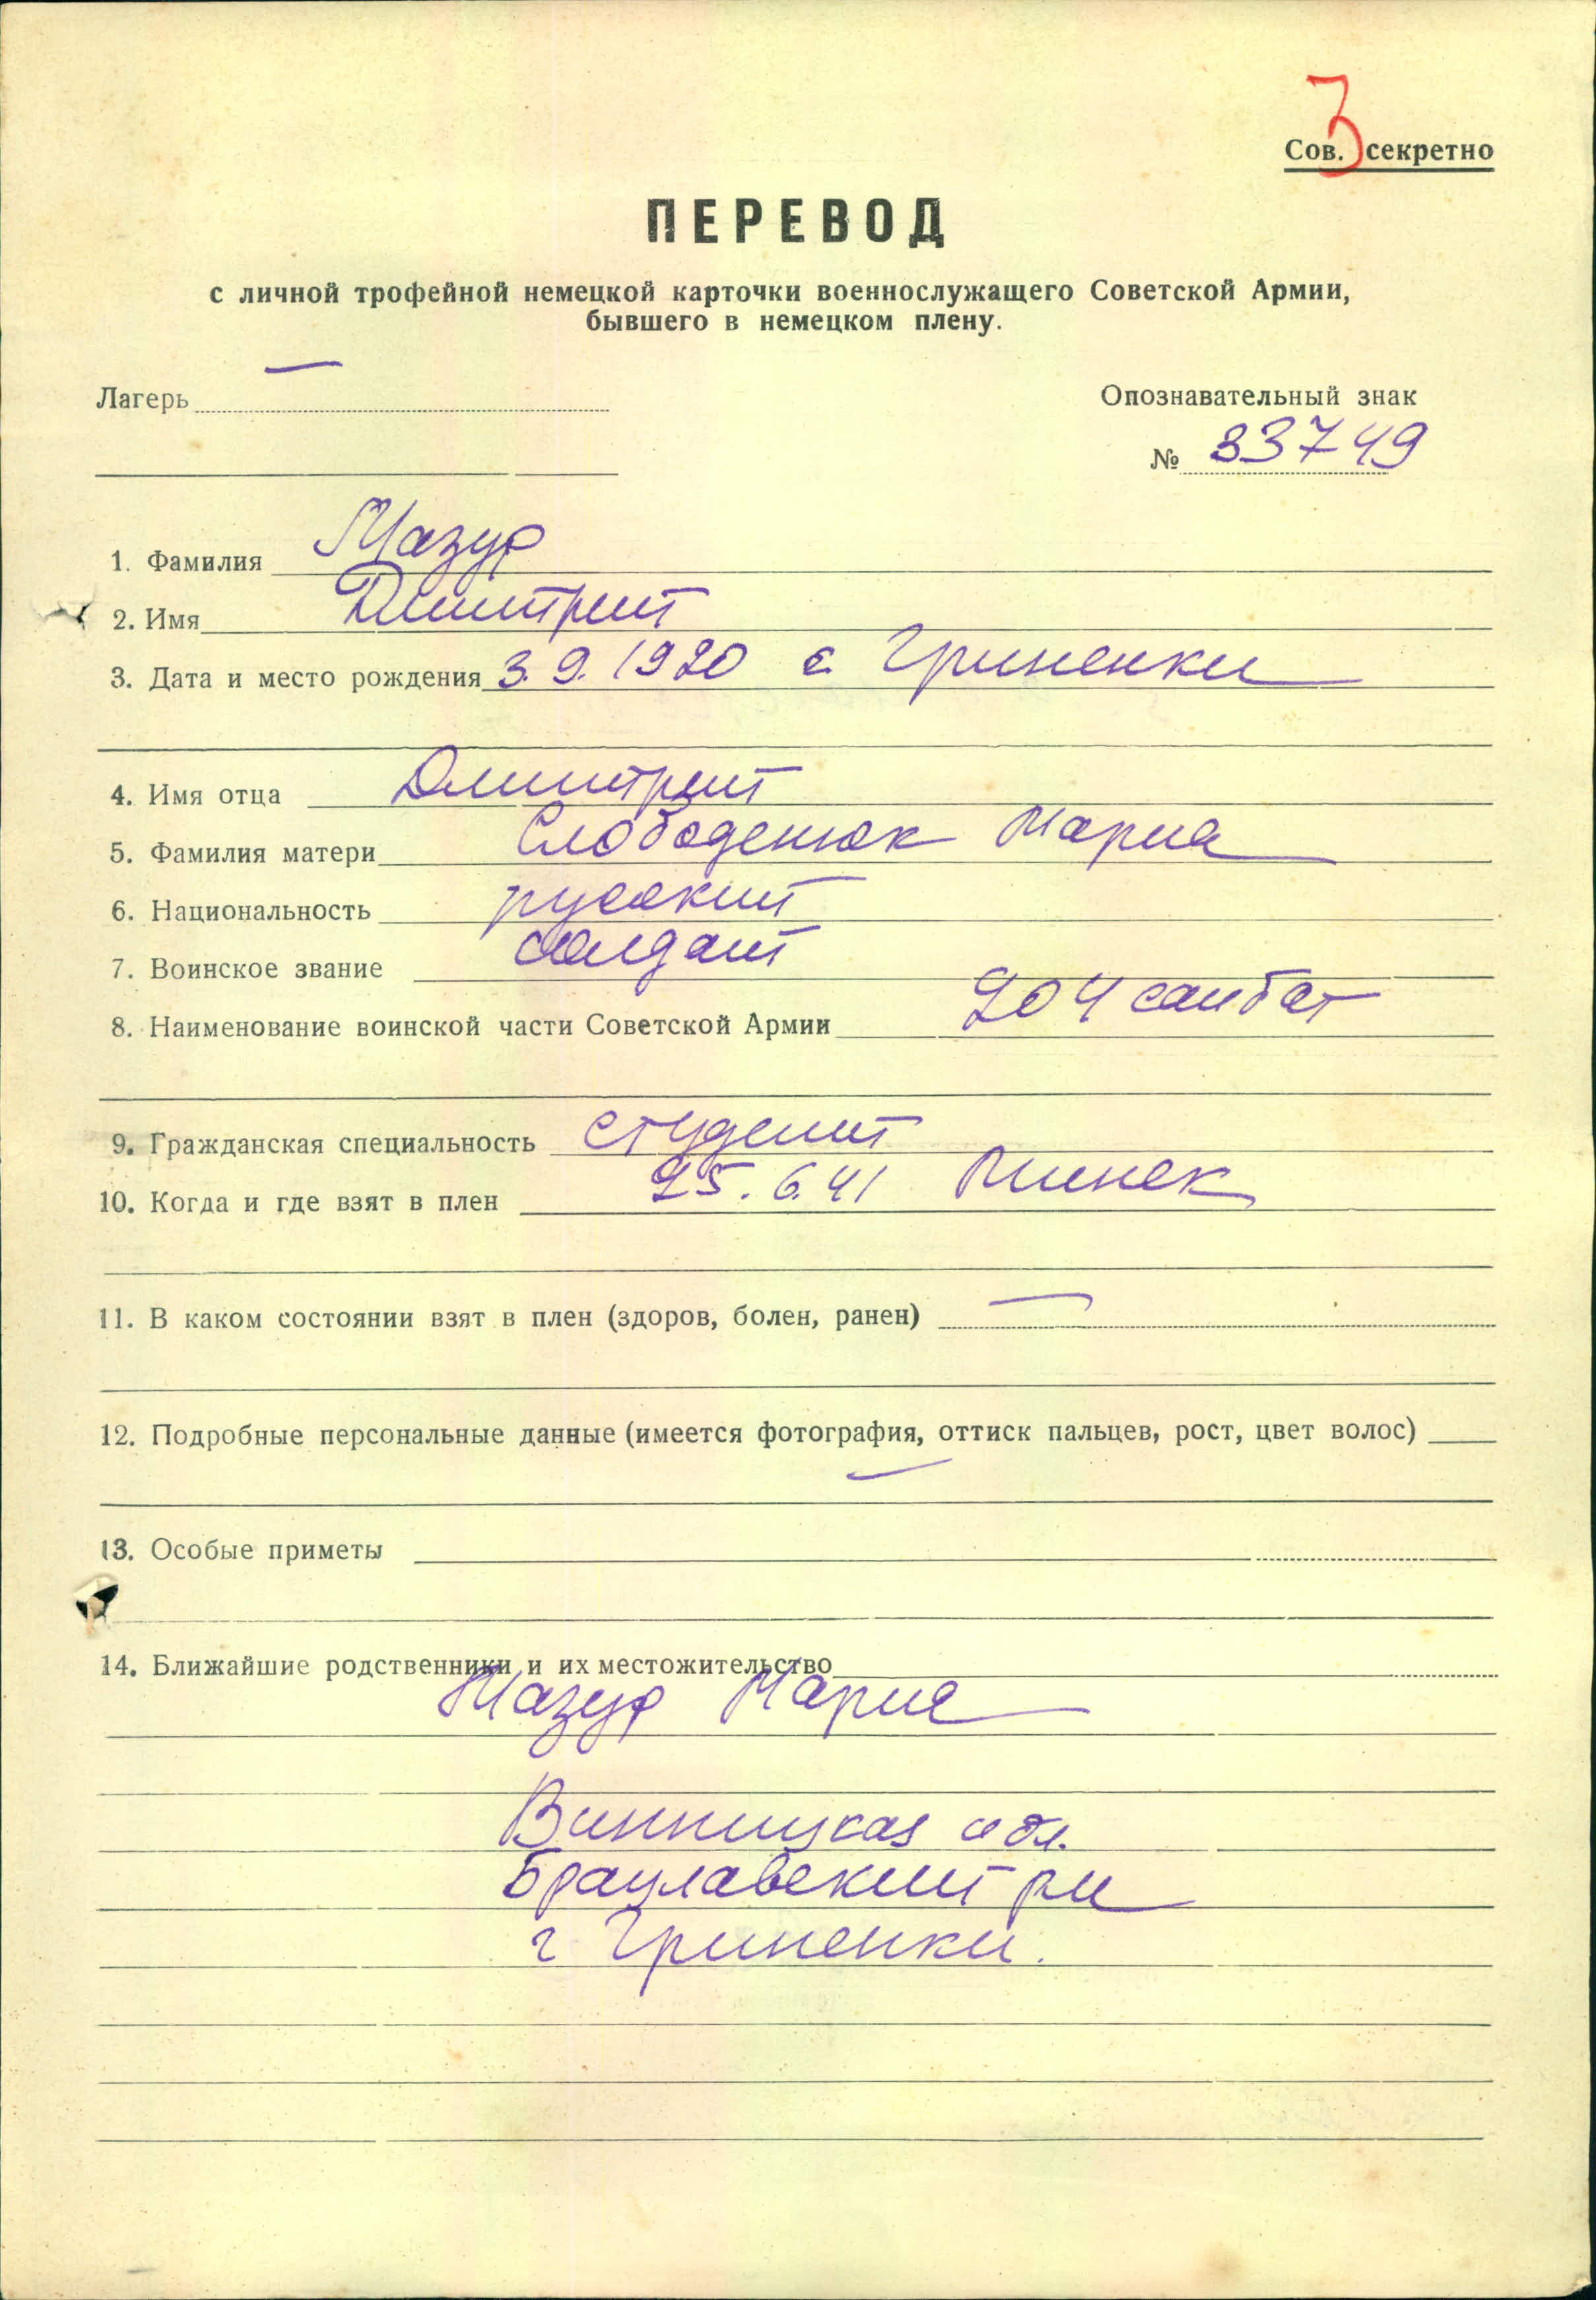 3
Сов. секретно
ПЕРЕВОД
с личной трофейной немецкой карточки военнослужащего Советской Армии,
бывшего в немецком плену.
Лагерь —
Опознавательный знак
№ 33749
1. Фамилия Мазур
2. Имя Дмитрий
3. Дата и место рождения 3.9.1920 с. Гриненки
4. Имя отца Дмитрий
5. Фамилия матери Слободенюк Мария
6. Национальность русский
7. Воинское звание солдат
8. Наименование воинской части Советской Армии 204 санбат
9. Гражданская специальность студент
10. Когда и где взят в плен 25.6.41 Минск
11. В каком состоянии взят в плен (здоров, болен, ранен) —
12. Подробные персональные данные (имеется фотография, оттиск пальцев, рост, цвет волос)
—
13. Особые приметы
14. Ближайшие родственники и их местожительство
Мазур Мария
Винницкая обл.
Брацлавский рн
г Гриненки.